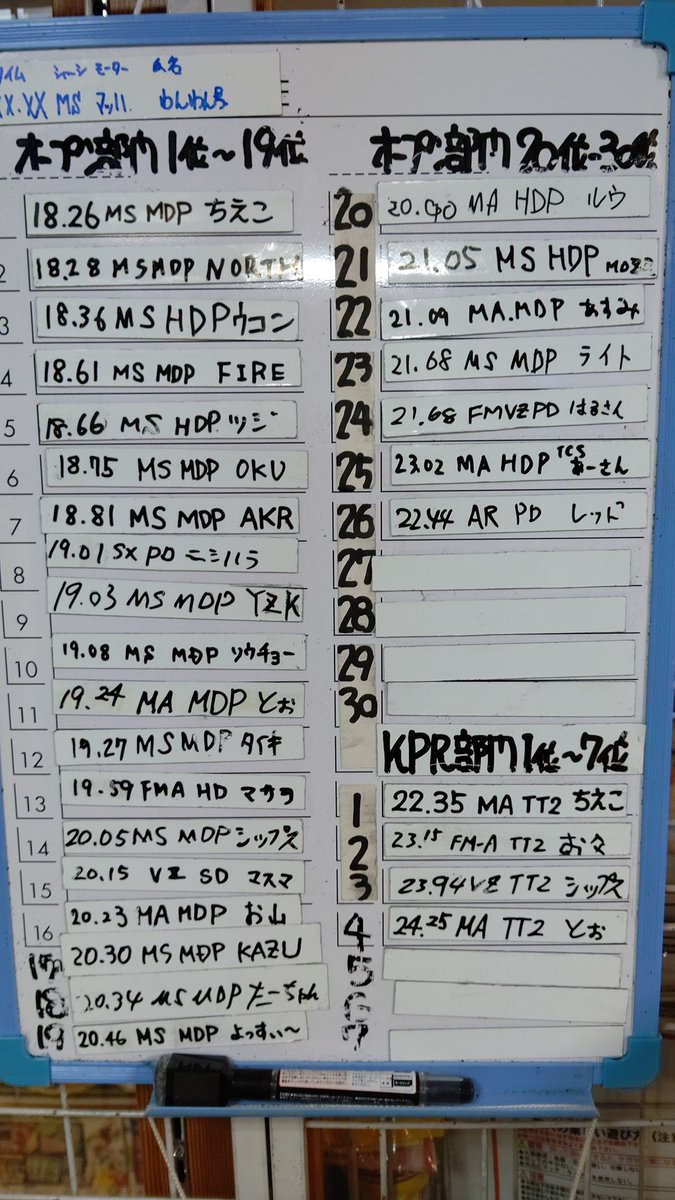 タイム シャーシ モーター 氏名
XX.XX MS マッハ わんわん号
オープン部門 1位〜19位
1 18.26 MS MDP ちえこ
2 18.28 MS MDP NORTH
3 18.36 MS HDP ウコン
4 18.61 MS MDP FIRE
5 18.66 MS HDP ツジ
6 18.75 MS MDP OKU
7 18.81 MS MDP AKR
8 19.01 SX PD ニシハラ
9 19.03 MS MDP YZK
10 19.08 MS MDP ソウチョー
11 19.24 MA MDP とぉ
12 19.27 MS MDP タイキ
13 19.59 FMA HD マサヲ
14 20.05 MS MDP シップス
15 20.15 VZ SD マスマ
16 20.23 MA MDP お山
17 20.30 MS MDP KAZU
18 20.34 MS MDP たーちゃん
19 20.46 MS MDP よっすぃ〜
オープン部門 20位-30位
20 20.90 MA HDP ルウ
21 21.05 MS HDP
22 21.09 MA.MDP あすみ
23 21.68 MS MDP ライト
24 21.68 FM VZ PD はるさん
25 23.02 MA HDP TCS あーさん
26 22.44 AR PD レッド
27
28
29
30
KPR部門 1位〜7位
1 22.35 MA TT2 ちえこ
2 23.15 FM-A TT2
3 23.94 VZ TT2 シップス
4 24.25 MA TT2 とぉ
5
6
7